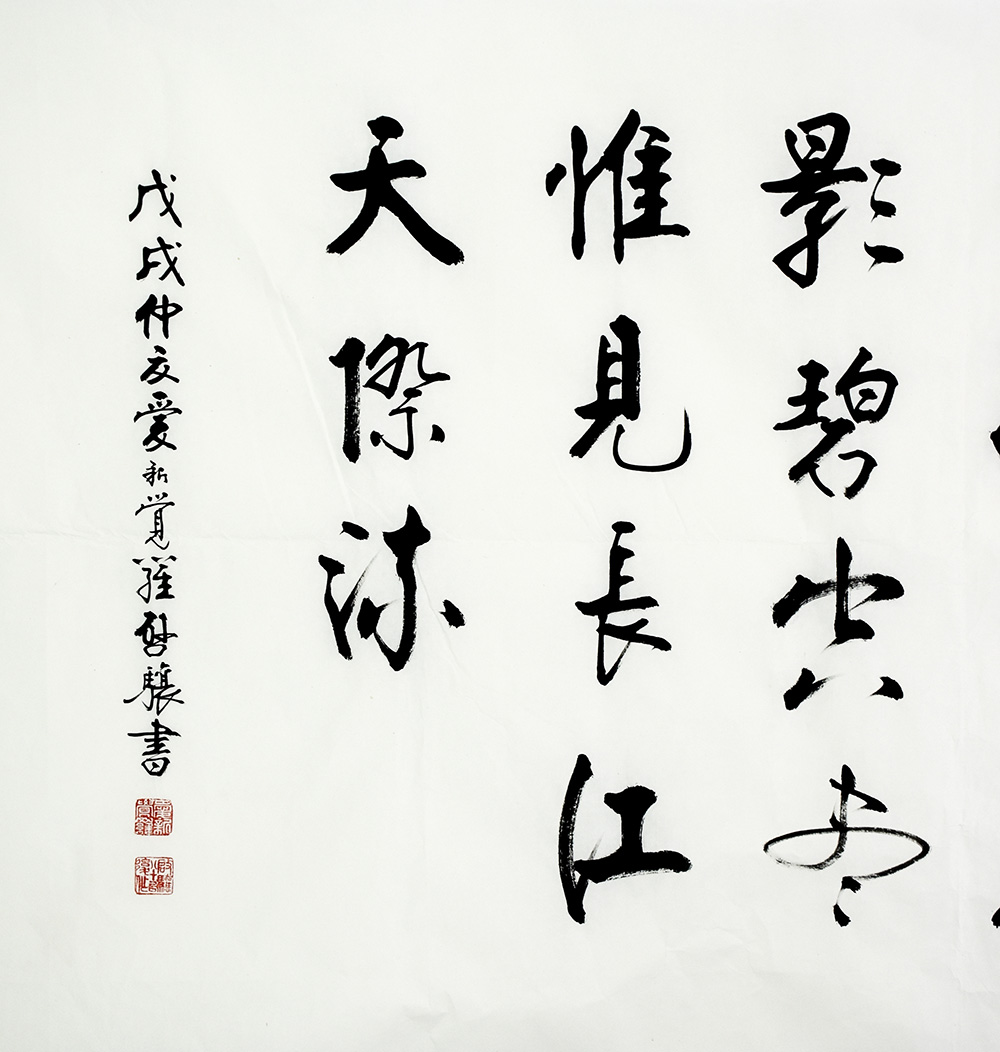 影碧空尽
惟見長江
天際流
戊戌仲夏愛新覺羅啟驤書